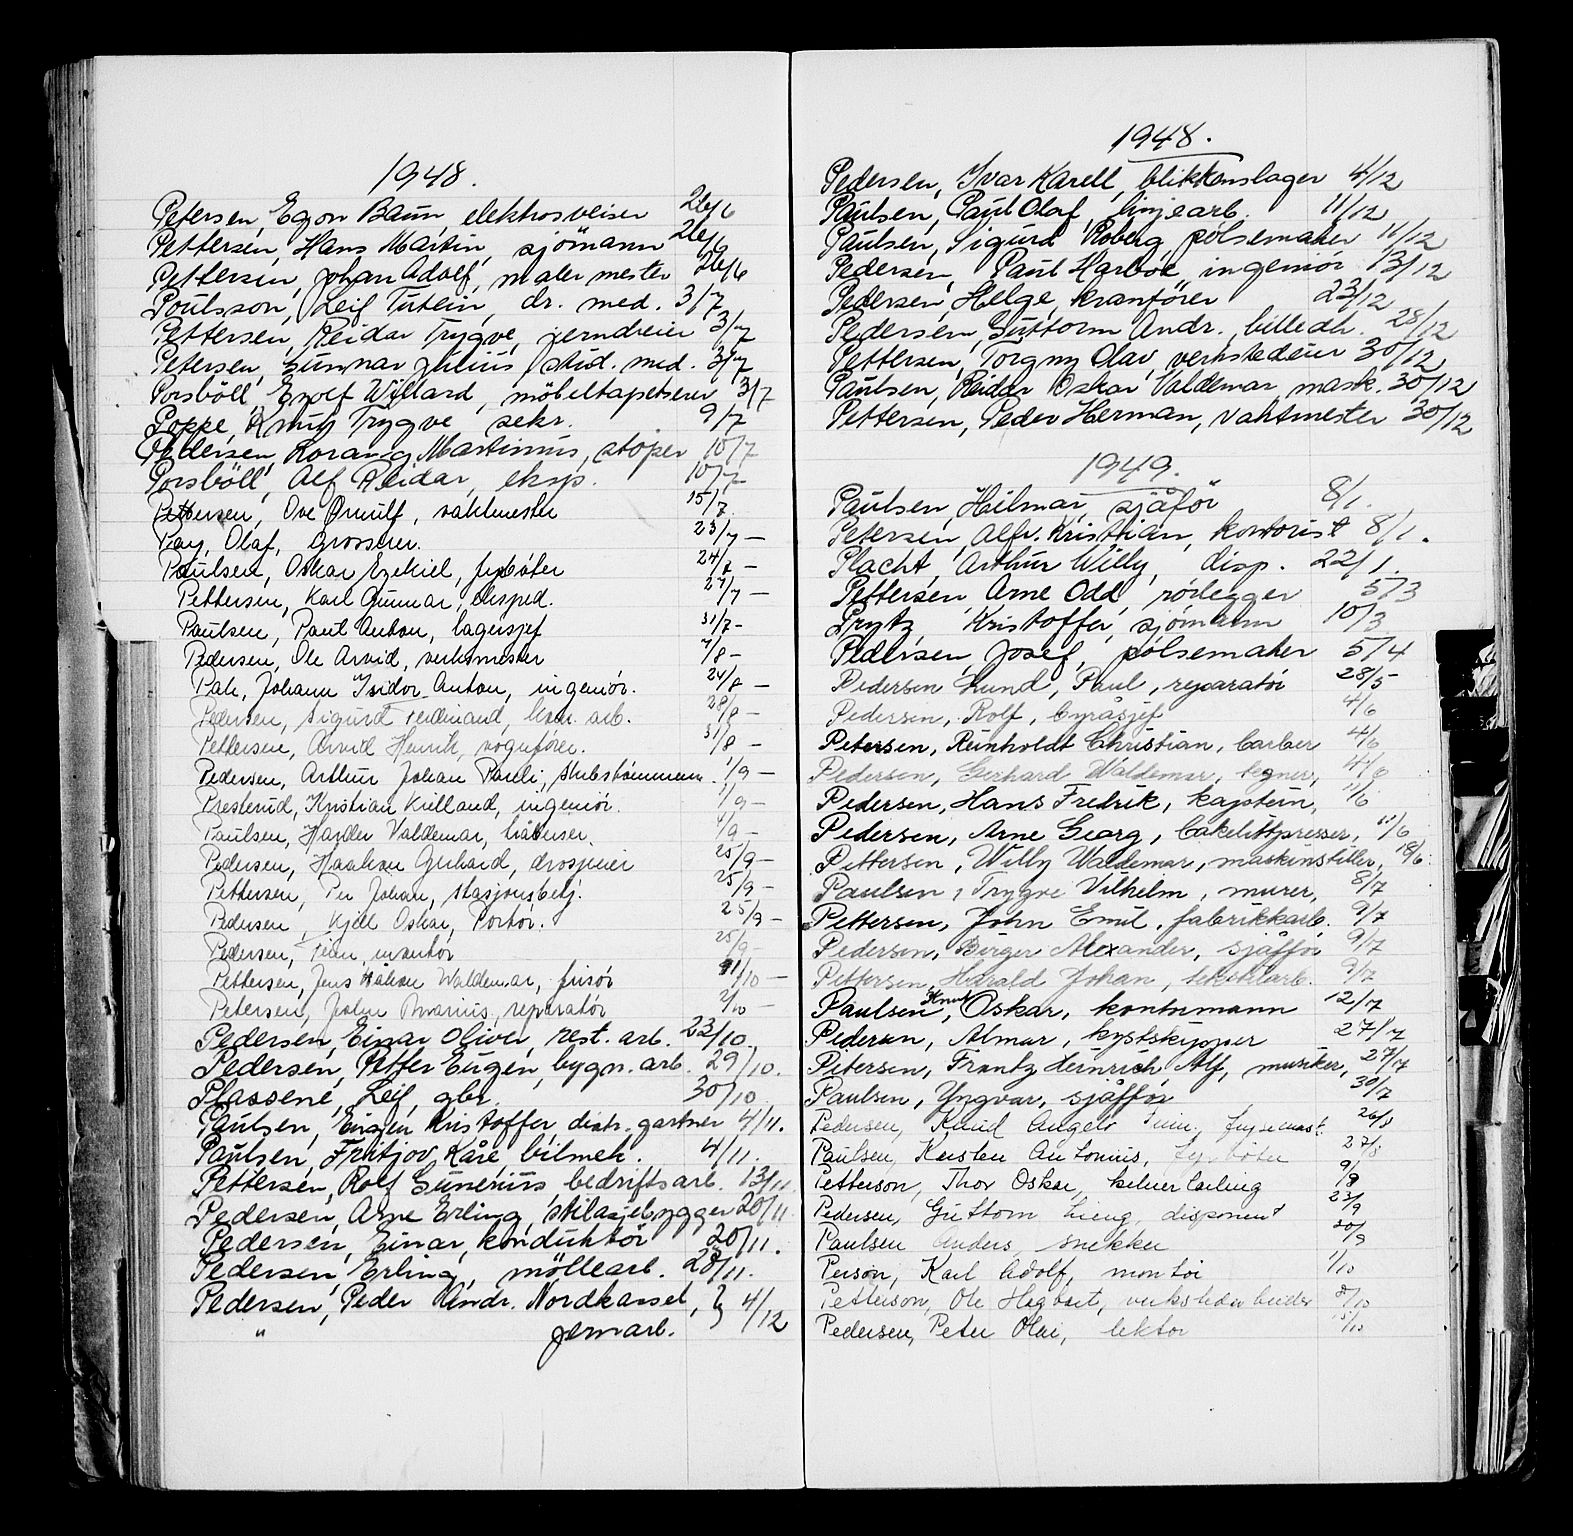 1948.
Petersen, Egon Baun, elektrosveiser 26/6
Pettersen, Hans Martin, sjömann 26/6
Pettersen, Johan Adolf, malermester 26/6
Poulsson, Leif Tutein, dr. med. 3/7
Pettersen, Reidar Trygve, jerndreier 3/7
Petersen, Gunnar Julius, stud. med. 3/7
Porsböll, Enolf Willard, möbeltapetserer 3/7
Poppe, Knut Trygve sekr. 9/7
Pedersen, Martinius, stöper 10/7
Porsböll, Alf Reidar, eksp. 10/7
Pettersen, Ove Ørnulf, vaktmester 15/7
Pay, Olaf, grosserer. 23/7 —
Paulsen, Oskar Ezekiel, fyrbøter 24/7 —
Pettersen, Karl Gunnar, eksped. 27/7 —
Paulsen, Paul Anton, lagersjef 31/7 -
Pedersen, Ole Arvid, verksmester 7/8 -
Pah, Johann Isidor Anton, ingeniør. 24/8 —
Pedersen, Sigurd Ferdinand, kom. arb. 28/8 —
Pettersen, Arvid Henrik, vognfører. 31/8 —
Pedersen, Arthur Johan Pauli, skibstømmerm. 1/9 —
Presterud, Kristian Kielland, ingeniør. 1/9 —
Paulsen, Valdemar, 4/9 —
Pedersen, Haakon Gerhard, drosjeeier 25/9 —
Pettersen, Per Johan, stasjonsbetj. 25/9 —
Pedersen, Kjell Oskar, Portør. 25/9 —
Pedersen, Finn, montør 25/9 -
Pettersen, Jens Håkon Waldemar, frisør 1/10 —
Petersen, Johan Marius, reparatør 2/10 —
Pedersen, Einar Oliver, rest. arb. 23/10.
Pedersen, Petter Eugen, bygn. arb. 29/10.
Plassene, Leif, gbr. 30/10
Paulsen, Kristoffer, distr. gartner 4/11.
Paulsen, Fritjov Kåre, bilmek. 4/11.
Pettersen, Rolf Gunerius, bedriftsarb. 13/11
Pedersen, Arne Erling, skilasjebygger 20/11
Pedersen, Einar, konduktör 20/11.
Pedersen, Erling, möllearb. 28/11.
Pedersen, Peder Andr. Nordkassel, } 4/12
" jernarb.
1948.
Pedersen, Ivar Karell, blikkenslager 4/12
Paulsen, Paul Olaf, linjearb. 11/12
Paulsen, Sigurd Roberg, pölsemaker 11/12
Pedersen, Paul Harböe, ingeniör 13/12
Pedersen, Helge, kranförer 23/12
Pedersen, Guttorm Andr., billedh. 28/12
Pettersen, Torgny Olav, verkstedeier 30/12
Paulsen, Reidar Oskar Valdemar, mask. 30/12
Pettersen, Peder Herman, vaktmester 30/12
1949.
Paulsen, Hilmar, sjåför 8/1.
Petersen, Alfr. Kristtian, kontorist 8/1.
Placht, Arthur Willy, disp. 22/1.
Pettersen, Arne Odd, rörlegger 5/3
Prytz, Kristoffer, sjömann 10/3
Pedersen, Josef, pölsemaker 5/4
Pedersen Lund, Paul, reparatör 28/5
Pedersen, Rolf, byråsjef 4/6
Petersen, Reinholdt Christian, barber 4/6
Pedersen, Gerhard Waldemar, tegner, 4/6
Pedersen, Hans Fredrik, kaptein, 11/6
Pedersen, Arne Georg, bakelittpresser, 11/6
Pettersen, Willy Waldemar, maskinstiller, 18/6.
Paulsen, Trygve Vilhelm, murer, 8/7
Pettersen, John Emil, fabrikkarb. 9/7
Pedersen, Birger Alexander, sjåffør 9/7
Pettersen, Harald Johan, tekstilarb. 9/7
Paulsen, Knut Oskar, kontormann 12/7
Pedersen, Almar, kystskipper 27/7
Petersen, Frantz Heinrich Alf, musiker, 27/7
Paulsen, Yngvar, sjåffør 30/7
Pedersen, Knud Angelo 26/8
Paulsen, Karsten Antonius, fyrbøter 27/8
Petterson, Thor Oskar, kelnerlærling 9/8
Pedersen, Guttorm disponent 23/9
Paulsen Anders, snekker 30/9
Person, Karl Adolf, montør 1/10
Petterson, Ole Hagbart, verkstedarbeider 8/10
Pedersen, Peter Olai, lektor 15/10